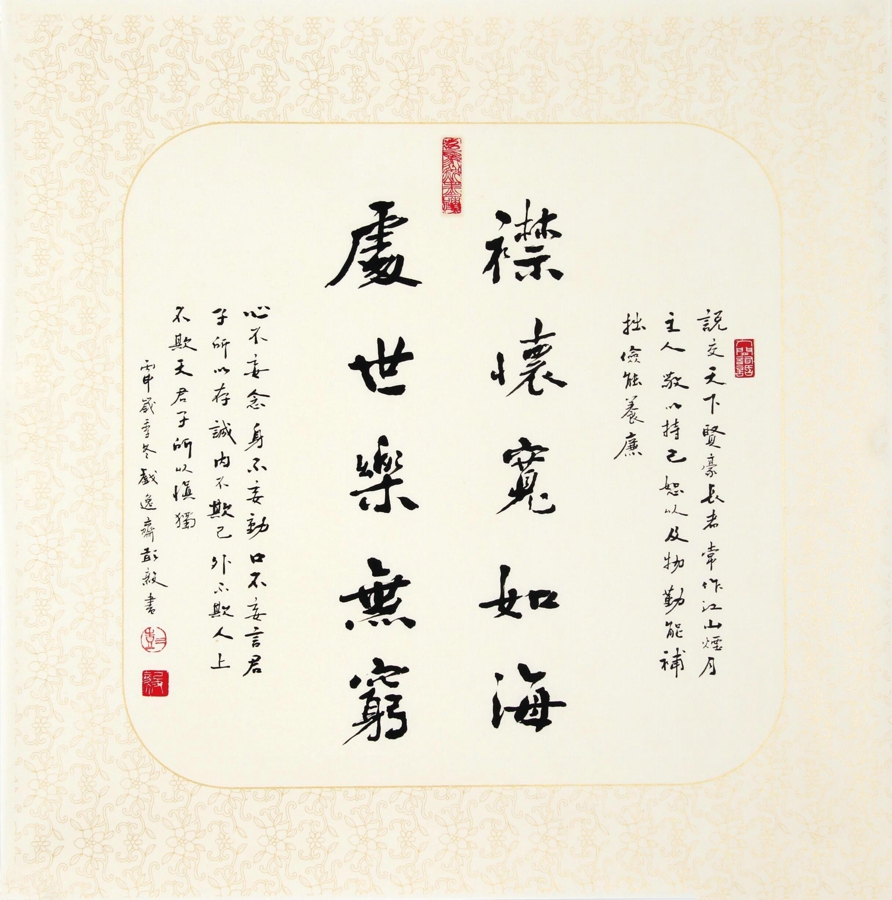 說交天下賢豪長者常作江山煙月
主人敬以持己恕以及物勤能補
拙儉能養廉
襟懷寬如海
處世樂無窮
心不妄念身不妄動口不妄言君
子所以存誠內不欺己外不欺人上
不欺天君子所以慎獨
丙申歲季冬戲逸齋彭毅書